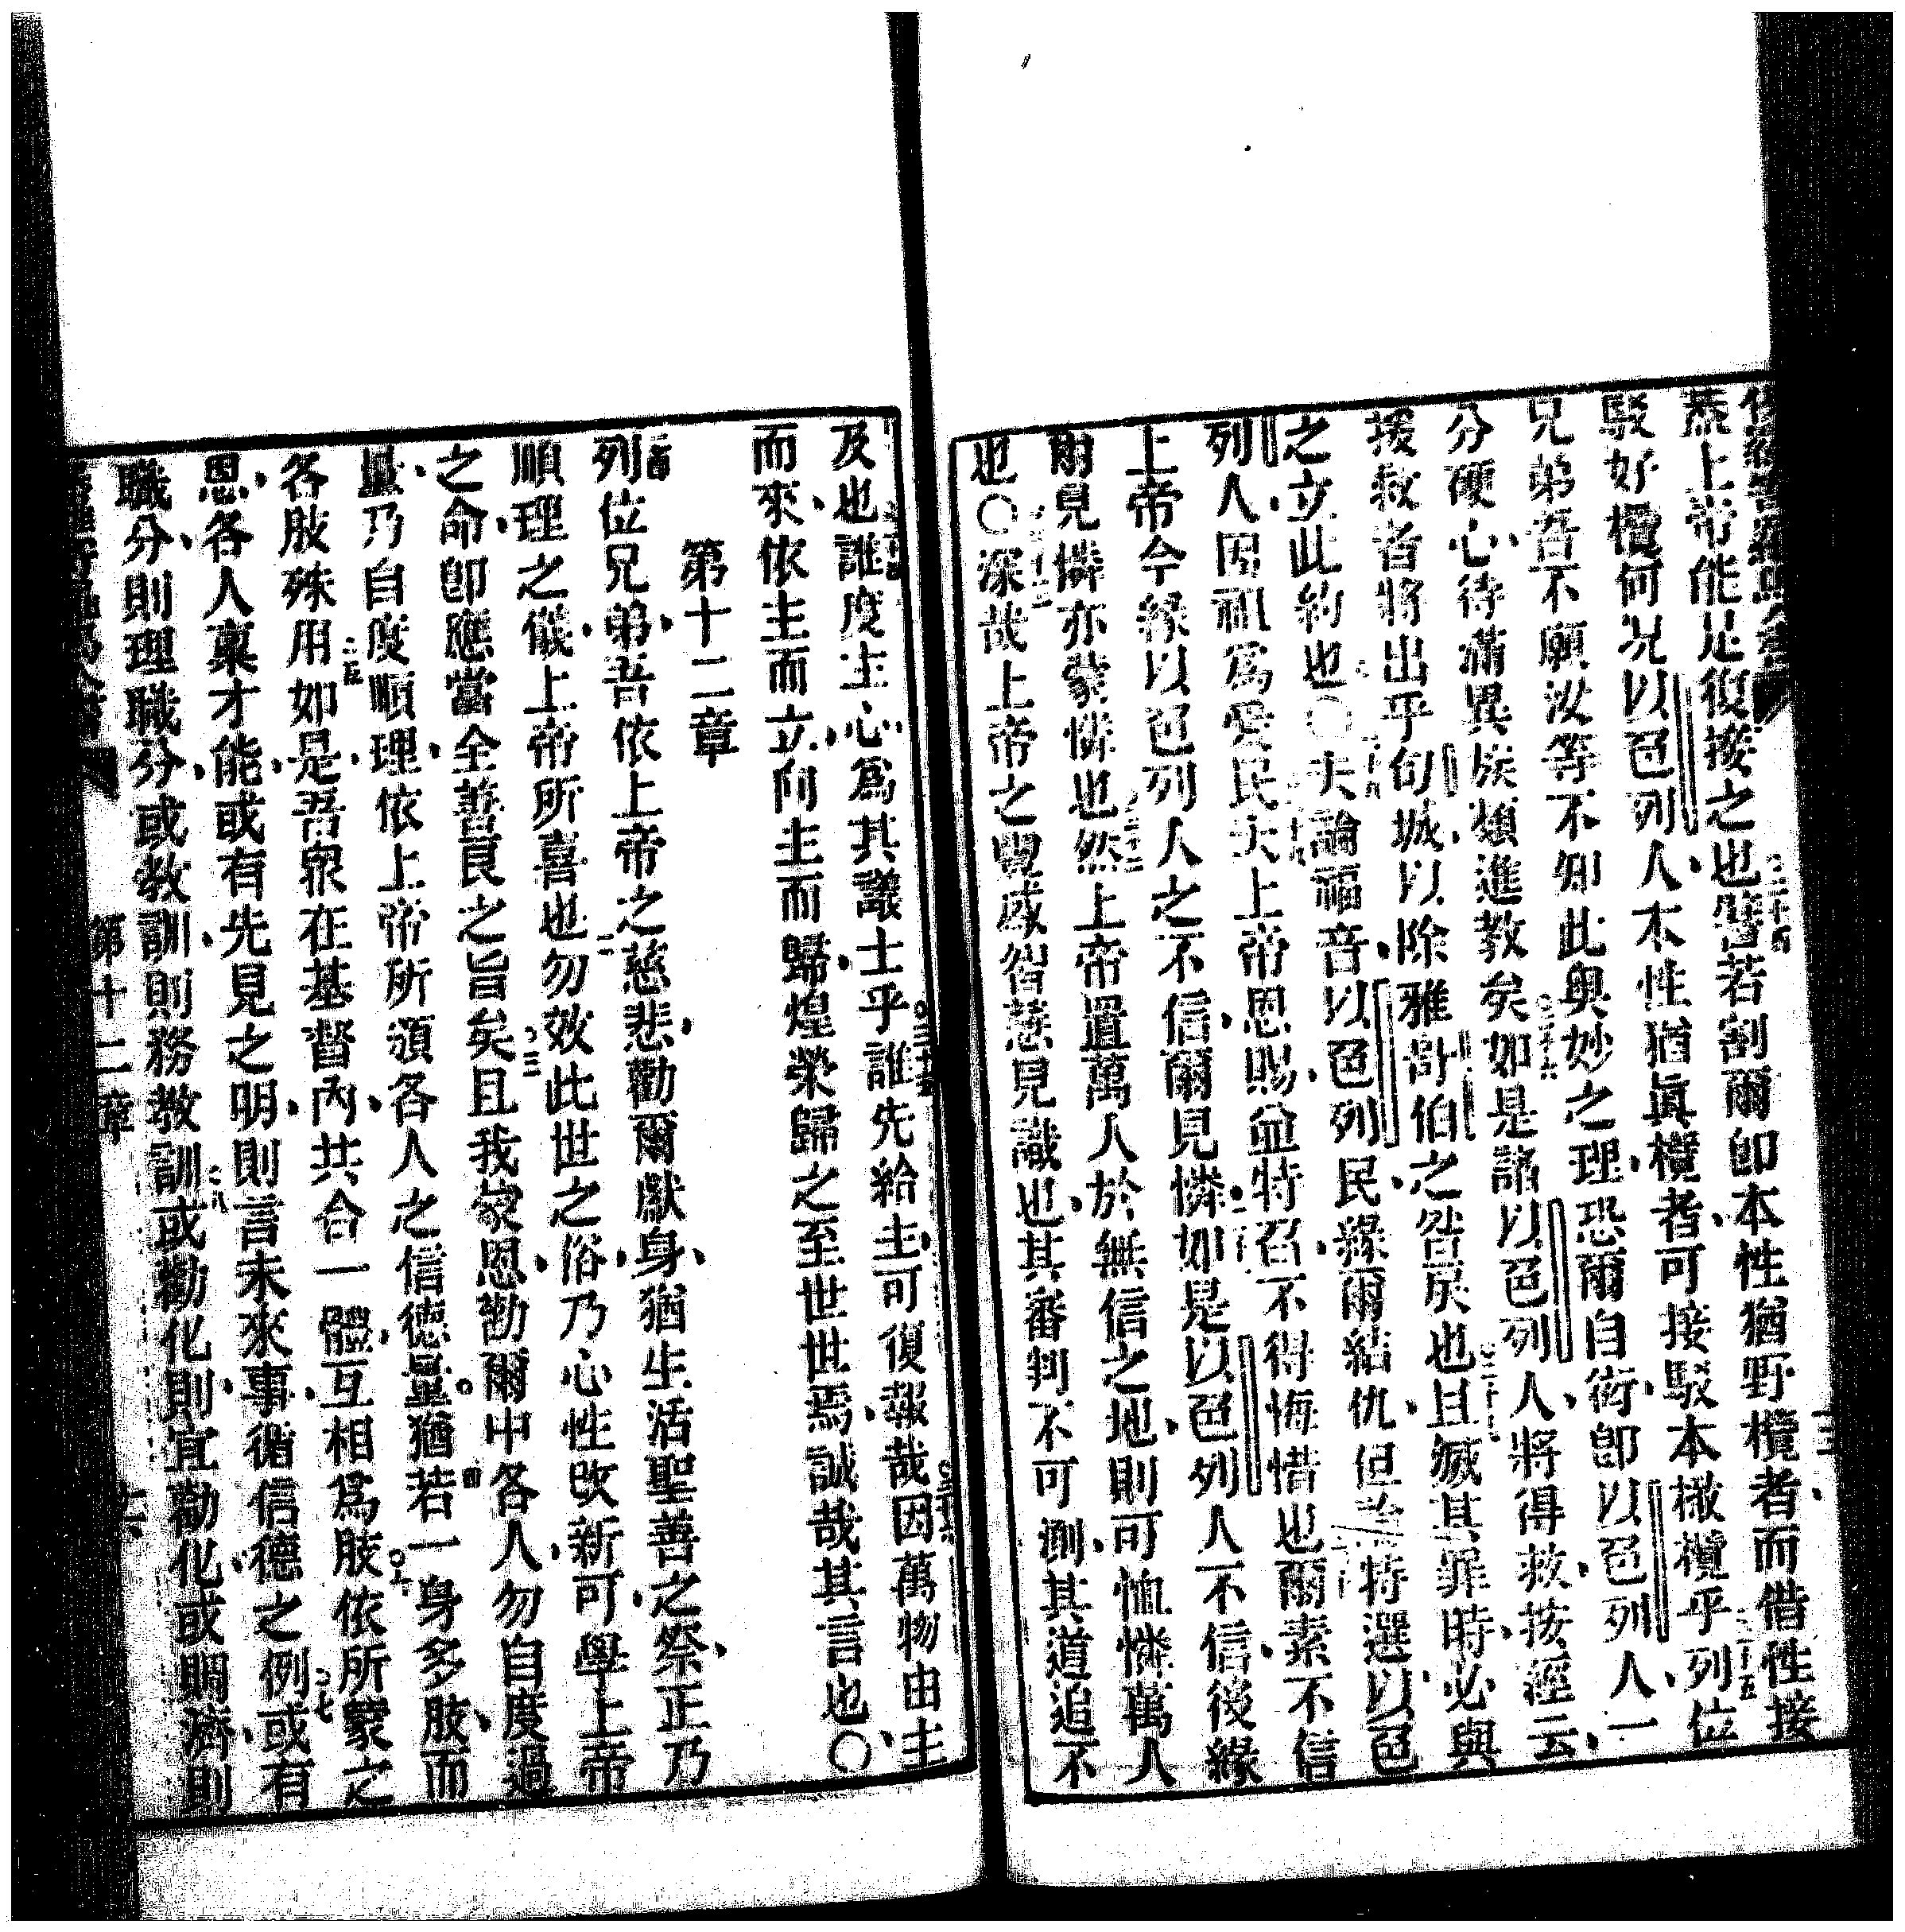 蓋上帝能足復接之也譬若割爾卽本性猶野欖者而偕性接
駁好欖何况以色列人本性猶眞欖者可接駁本橄欖乎列位
兄弟吾不願汝等不知此奧妙之理恐爾自衒卽以色列人一
分硬心待滿異族類進教矣如是諸以色列人將得救按經云
援救者將出乎旬城以除雅計伯之咎戾也且滅其罪時必與
之立此約也〇夫論福音以色列民緣爾結仇但 特選以色
列人因祖爲愛民夫上帝恩賜並特召不得悔惜也爾素不信
上帝今緣以色列人之不信爾見憐如是以色列人不信後緣
爾見憐亦蒙憐也然上帝置萬人於無信之地則可恤憐萬人
也〇深哉上帝之豐盛智慧見識也其審判不可測其道追不
及也誰度主心爲其議士乎誰先給主可復報哉因萬物由主
而來依主而立向主而歸煌榮歸之至世世焉誠哉其言也〇
第十二章
列位兄弟吾依上帝之慈悲勸爾獻身猶生活聖善之祭正乃
順理之儀上帝所喜也勿效此世之俗乃心性改新可學上帝
之命卽應當全善良之旨矣且我蒙恩勸爾中各人勿自度過
量乃自度順理依上帝所頒各人之信德量猶若一身多肢而
各肢殊用如是吾衆在基督內共合一體互相爲肢依所蒙之
恩各人稟才能或有先見之明則言未來事循信德之例或有
職分則理職分或教訓則務教訓或勸化則宜勸化或賙濟則
第十二章